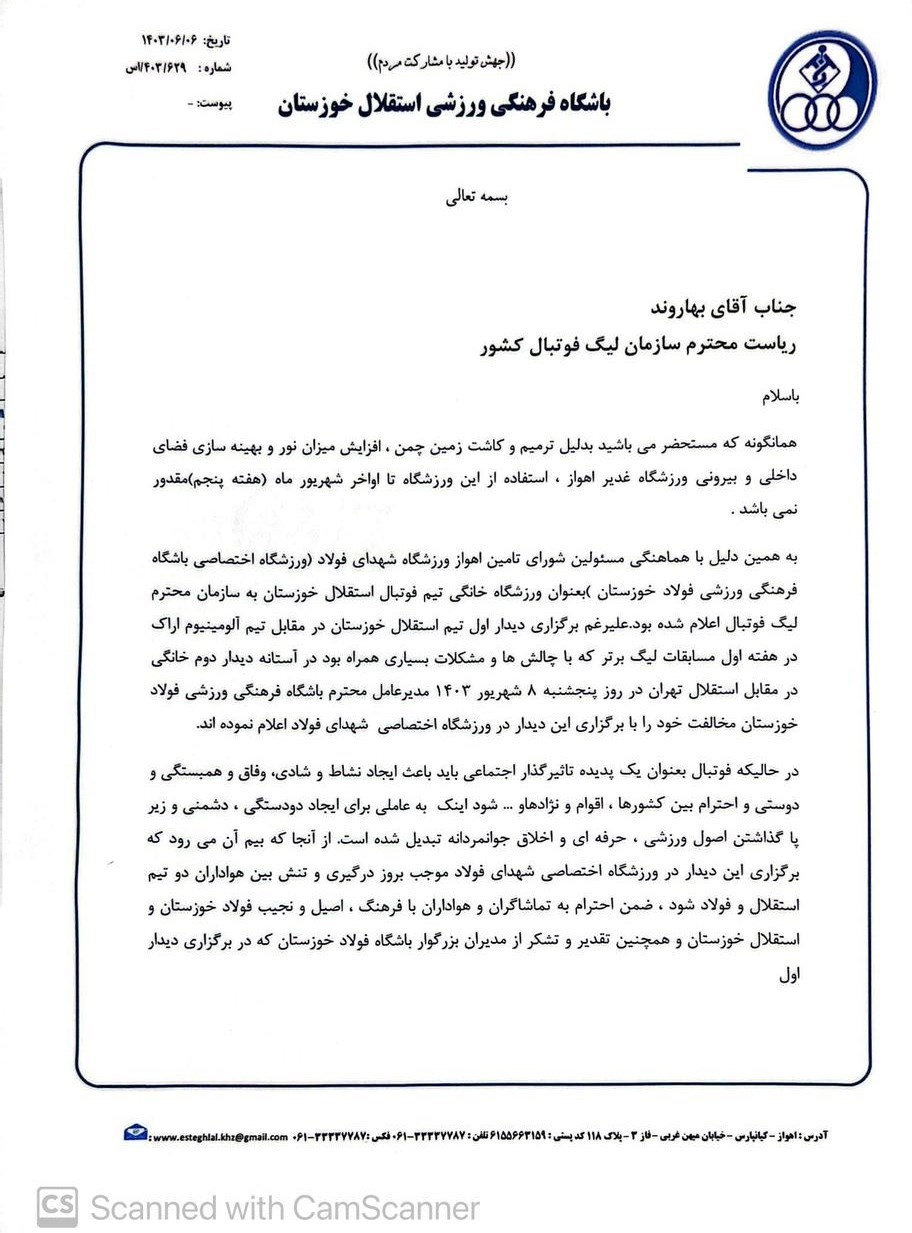 تاریخ: ۱۴۰۳/۰۶/۰۶
شماره: ۴۰۳/۶۲۹/اس
پیوست: -
((جهش تولید با مشارکت مردم))
باشگاه فرهنگی ورزشی استقلال خوزستان
بسمه تعالی
جناب آقای بهاروند
ریاست محترم سازمان لیگ فوتبال کشور
باسلام
همانگونه که مستحضر می باشید بدلیل ترمیم و کاشت زمین چمن ، افزایش میزان نور و بهینه سازی فضای
داخلی و بیرونی ورزشگاه غدیر اهواز ، استفاده از این ورزشگاه تا اواخر شهریور ماه (هفته پنجم)مقدور
نمی باشد .
به همین دلیل با هماهنگی مسئولین شورای تامین اهواز ورزشگاه شهدای فولاد (ورزشگاه اختصاصی باشگاه
فرهنگی ورزشی فولاد خوزستان )بعنوان ورزشگاه خانگی تیم فوتبال استقلال خوزستان به سازمان محترم
لیگ فوتبال اعلام شده بود.علیرغم برگزاری دیدار اول تیم استقلال خوزستان در مقابل تیم آلومینیوم اراک
در هفته اول مسابقات لیگ برتر که با چالش ها و مشکلات بسیاری همراه بود در آستانه دیدار دوم خانگی
در مقابل استقلال تهران در روز پنجشنبه ۸ شهریور ۱۴۰۳ مدیرعامل محترم باشگاه فرهنگی ورزشی فولاد
خوزستان مخالفت خود را با برگزاری این دیدار در ورزشگاه اختصاصی شهدای فولاد اعلام نموده اند.
در حالیکه فوتبال بعنوان یک پدیده تاثیرگذار اجتماعی باید باعث ایجاد نشاط و شادی، وفاق و همبستگی و
دوستی و احترام بین کشورها ، اقوام و نژادهاو ... شود اینک به عاملی برای ایجاد دودستگی ، دشمنی و زیر
پا گذاشتن اصول ورزشی ، حرفه ای و اخلاق جوانمردانه تبدیل شده است. از آنجا که بیم آن می رود که
برگزاری این دیدار در ورزشگاه اختصاصی شهدای فولاد موجب بروز درگیری و تنش بین هواداران دو تیم
استقلال و فولاد شود ، ضمن احترام به تماشاگران و هواداران با فرهنگ ، اصیل و نجیب فولاد خوزستان و
استقلال خوزستان و همچنین تقدیر و تشکر از مدیران بزرگوار باشگاه فولاد خوزستان که در برگزاری دیدار
اول
آدرس : اهواز - کیانپارس - خیابان میهن غربی - فاز ۳ - پلاک ۱۱۸ کد پستی : ۶۱۵۵۶۶۳۱۵۹ تلفن : ۳۳۳۳۷۷۸۷-۰۶۱ فکس :۳۳۳۳۷۷۸۷-۰۶۱ www.esteghlal.khz@gmail.com :
CS Scanned with CamScanner